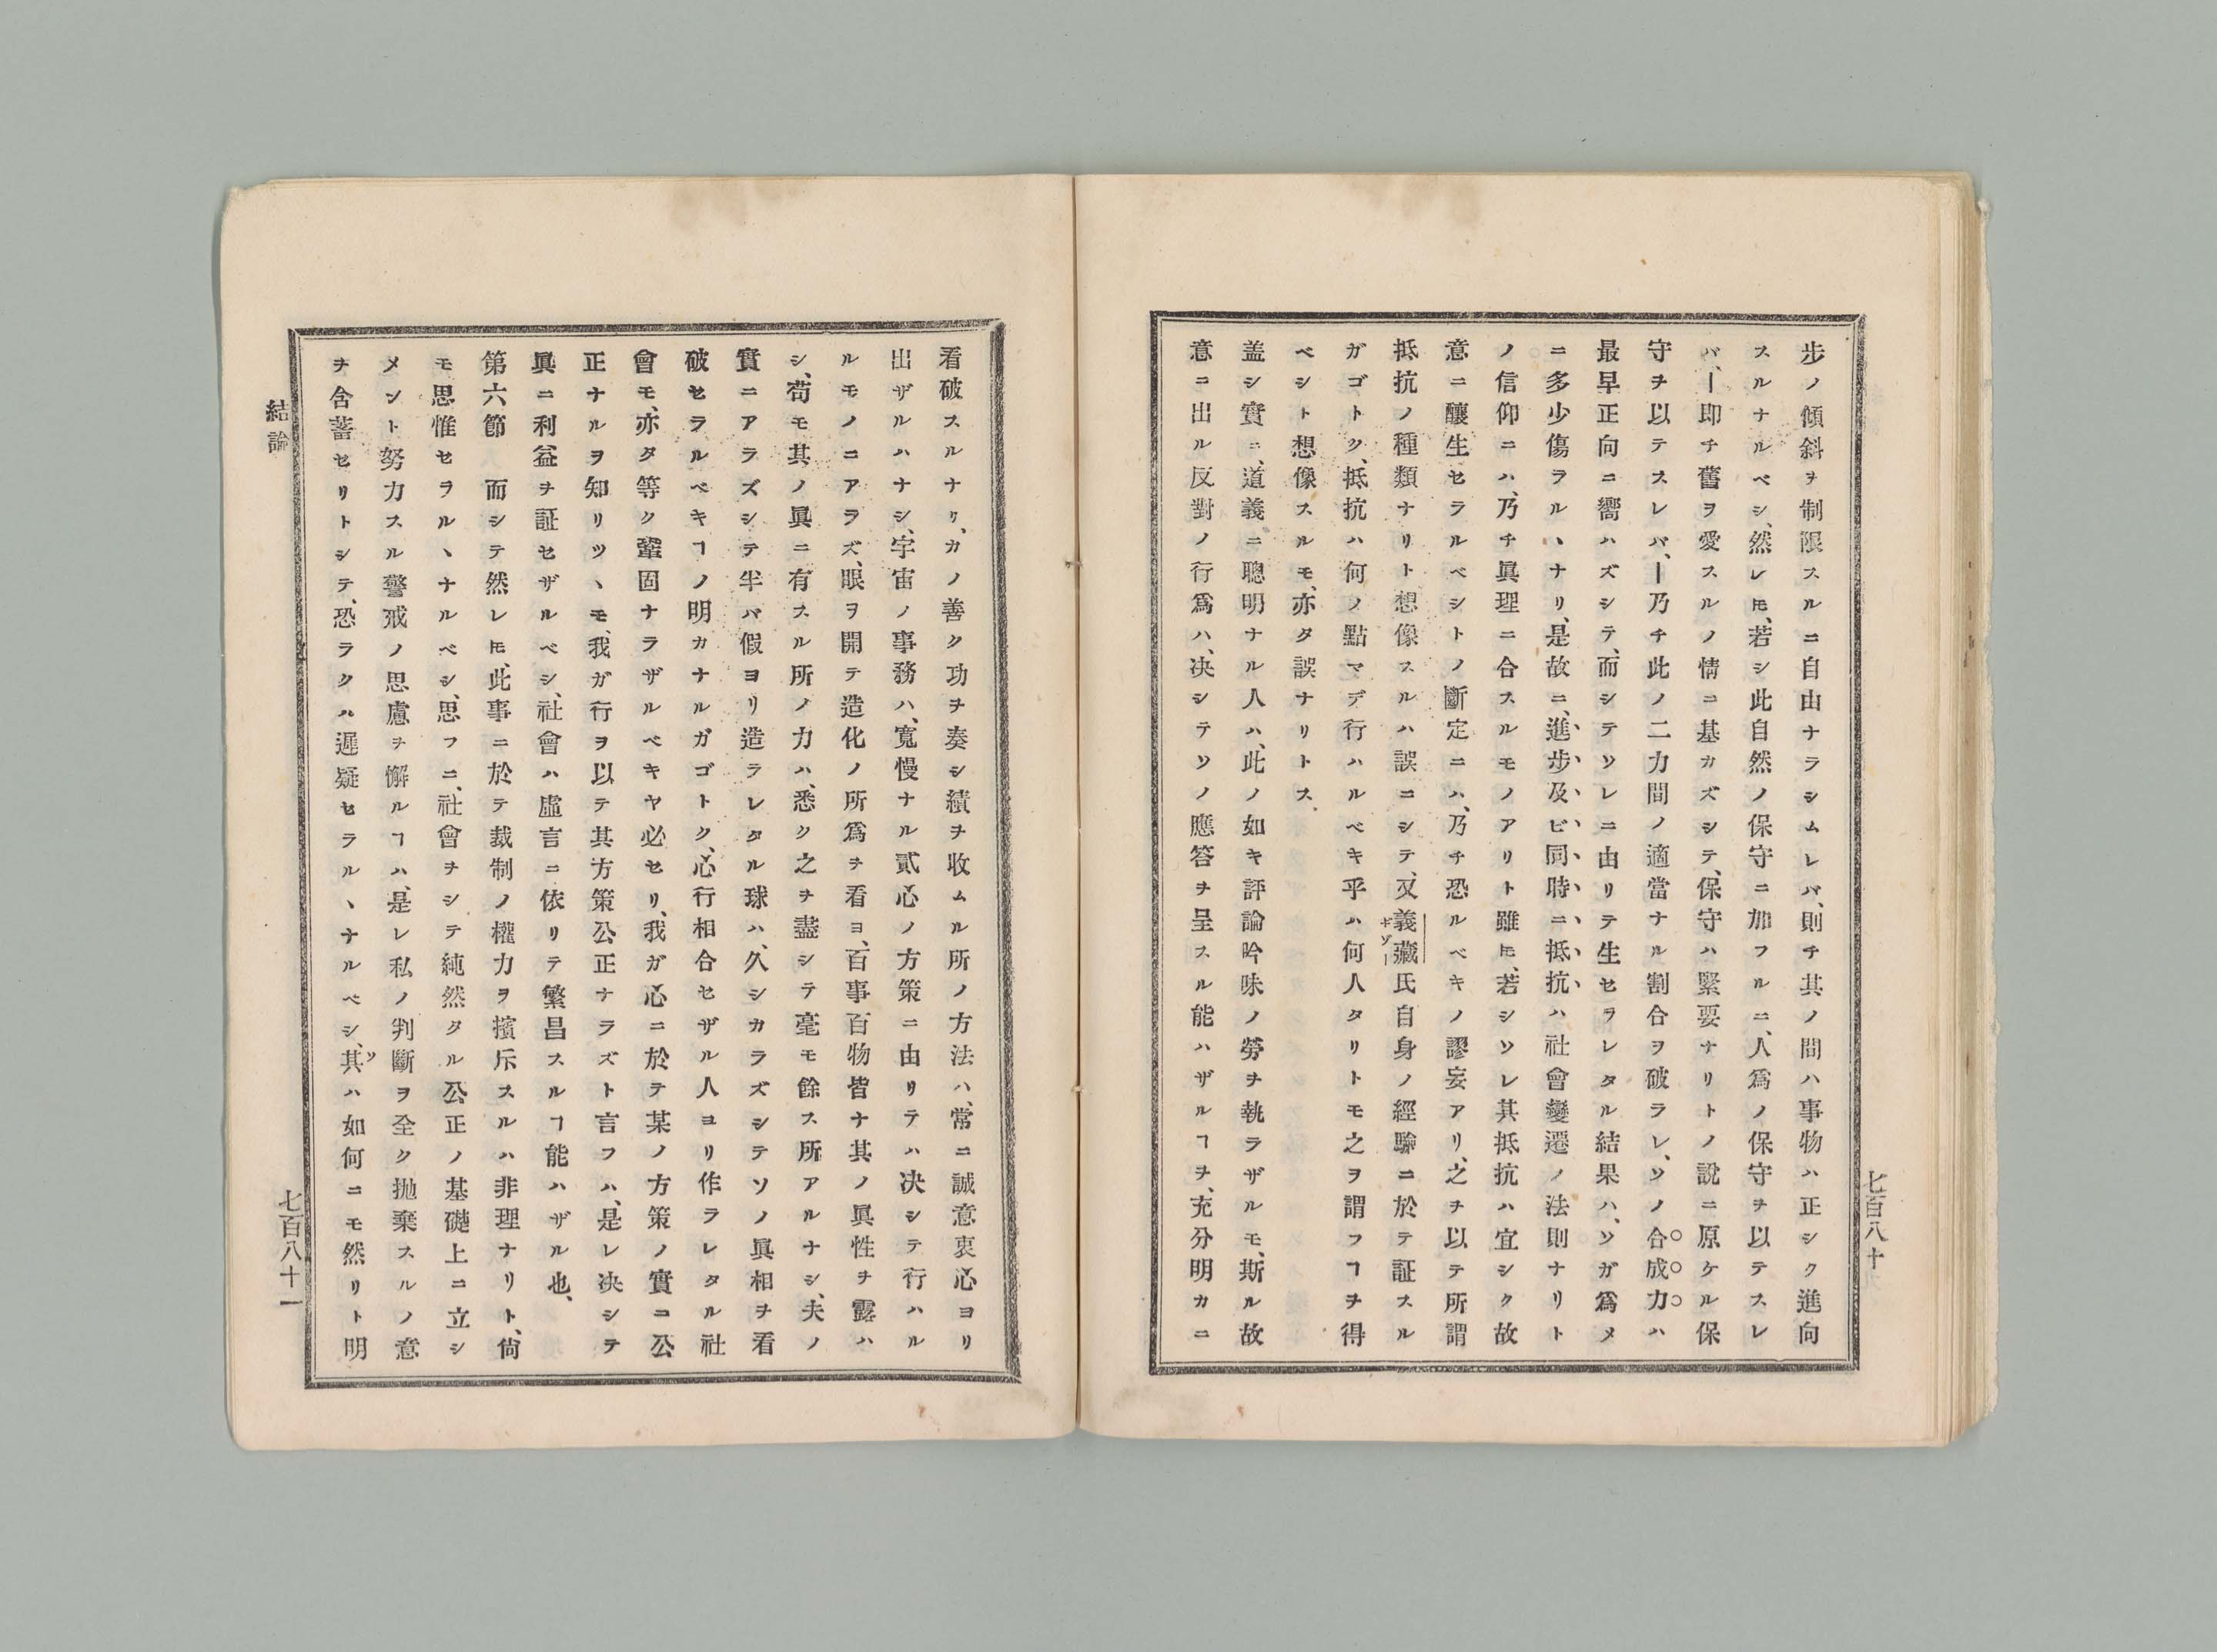 七百八十
步ノ傾斜ヲ制限スルニ自由ナラシムレバ、則チ其ノ間ハ事物ハ正シク進向
スルナルベシ、然レ𪜈、若シ此自然ノ保守ニ加フルニ、人爲ノ保守ヲ以テスレ
バ、―即チ舊ヲ愛スルノ情ニ基カズシテ、保守ハ緊要ナリトノ說ニ原ケル保
守ヲ以テスレバ、―乃チ此ノ二力間ノ適當ナル割合ヲ破ラレ、ソノ合成力ハ
最早正向ニ嚮ハズシテ、而シテソレニ由リテ生セラレタル結果ハ、ソガ爲メ
ニ多少傷ラルヽナリ、是故ニ、進步及ビ同時ニ抵抗ハ社會變遷ノ法則ナリト
ノ信仰ニハ、乃チ眞理ニ合スルモノアリト雖𪜈、若シソレ其抵抗ハ宜シク故
意ニ釀生セラルベシトノ斷定ニハ、乃チ恐ルベキノ謬妄アリ、之ヲ以テ所謂
抵抗ノ種類ナリト想像スルハ誤ニシテ、又義藏氏自身ノ經驗ニ於テ証スル
ギゾー
ガゴトク、抵抗ハ何ノ點マデ行ハルベキ乎ハ何人タリトモ之ヲ謂フヿヲ得
ベシト想像スルモ、亦タ誤ナリトス.
盖シ實ニ、道義ニ聰明ナル人ハ、此ノ如キ評論吟味ノ勞ヲ執ラザルモ、斯ル故
意ニ出ル反對ノ行爲ハ、决シテソノ應答ヲ呈スル能ハザルヿヲ、充分明カニ
看破スルナリ、カノ善ク功ヲ奏シ績ヲ收ムル所ノ方法ハ、常ニ誠意衷心ヨリ
出ザルハナシ、宇宙ノ事務ハ、寬慢ナル貳心ノ方策ニ由リテハ决シテ行ハル
ルモノニアラズ、眼ヲ開テ造化ノ所爲ヲ看ヨ、百事百物皆ナ其ノ眞性ヲ露ハ
シ、苟モ其ノ眞ニ有スル所ノ力ハ、悉ク之ヲ盡シテ毫モ餘ス所アルナシ、夫ノ
實ニアラズシテ半バ假ヨリ造ラレタル球ハ、久シカラズシテソノ眞相ヲ看
破セラルベキヿノ明カナルガゴトク、心行相合セザル人ヨリ作ラレタル社
會モ、亦タ等ク鞏固ナラザルベキヤ必セリ、我ガ心ニ於テ某ノ方策ノ實ニ公
正ナルヲ知リツヽモ、我ガ行ヲ以テ其方策公正ナラズト言フハ、是レ决シテ
眞ニ利益ヲ証セザルベシ、社會ハ虛言ニ依リテ繁昌スルヿ能ハザル也、
第六節 而シテ然レ𪜈、此事ニ於テ裁制ノ權力ヲ擯斥スルハ非理ナリト、尙
モ思惟セヲルヽナルベシ、思フニ、社會ヲシテ純然タル公正ノ基礎上ニ立シ
メント努力スル警戒ノ思慮ヲ懈ルヿハ、是レ私ノ判斷ヲ全ク抛棄スルノ意
ヲ含蓄セリトシテ、恐ラクハ遲疑セラルヽナルベシ、其ハ如何ニモ然リト明
ソ
結論
七百八十一